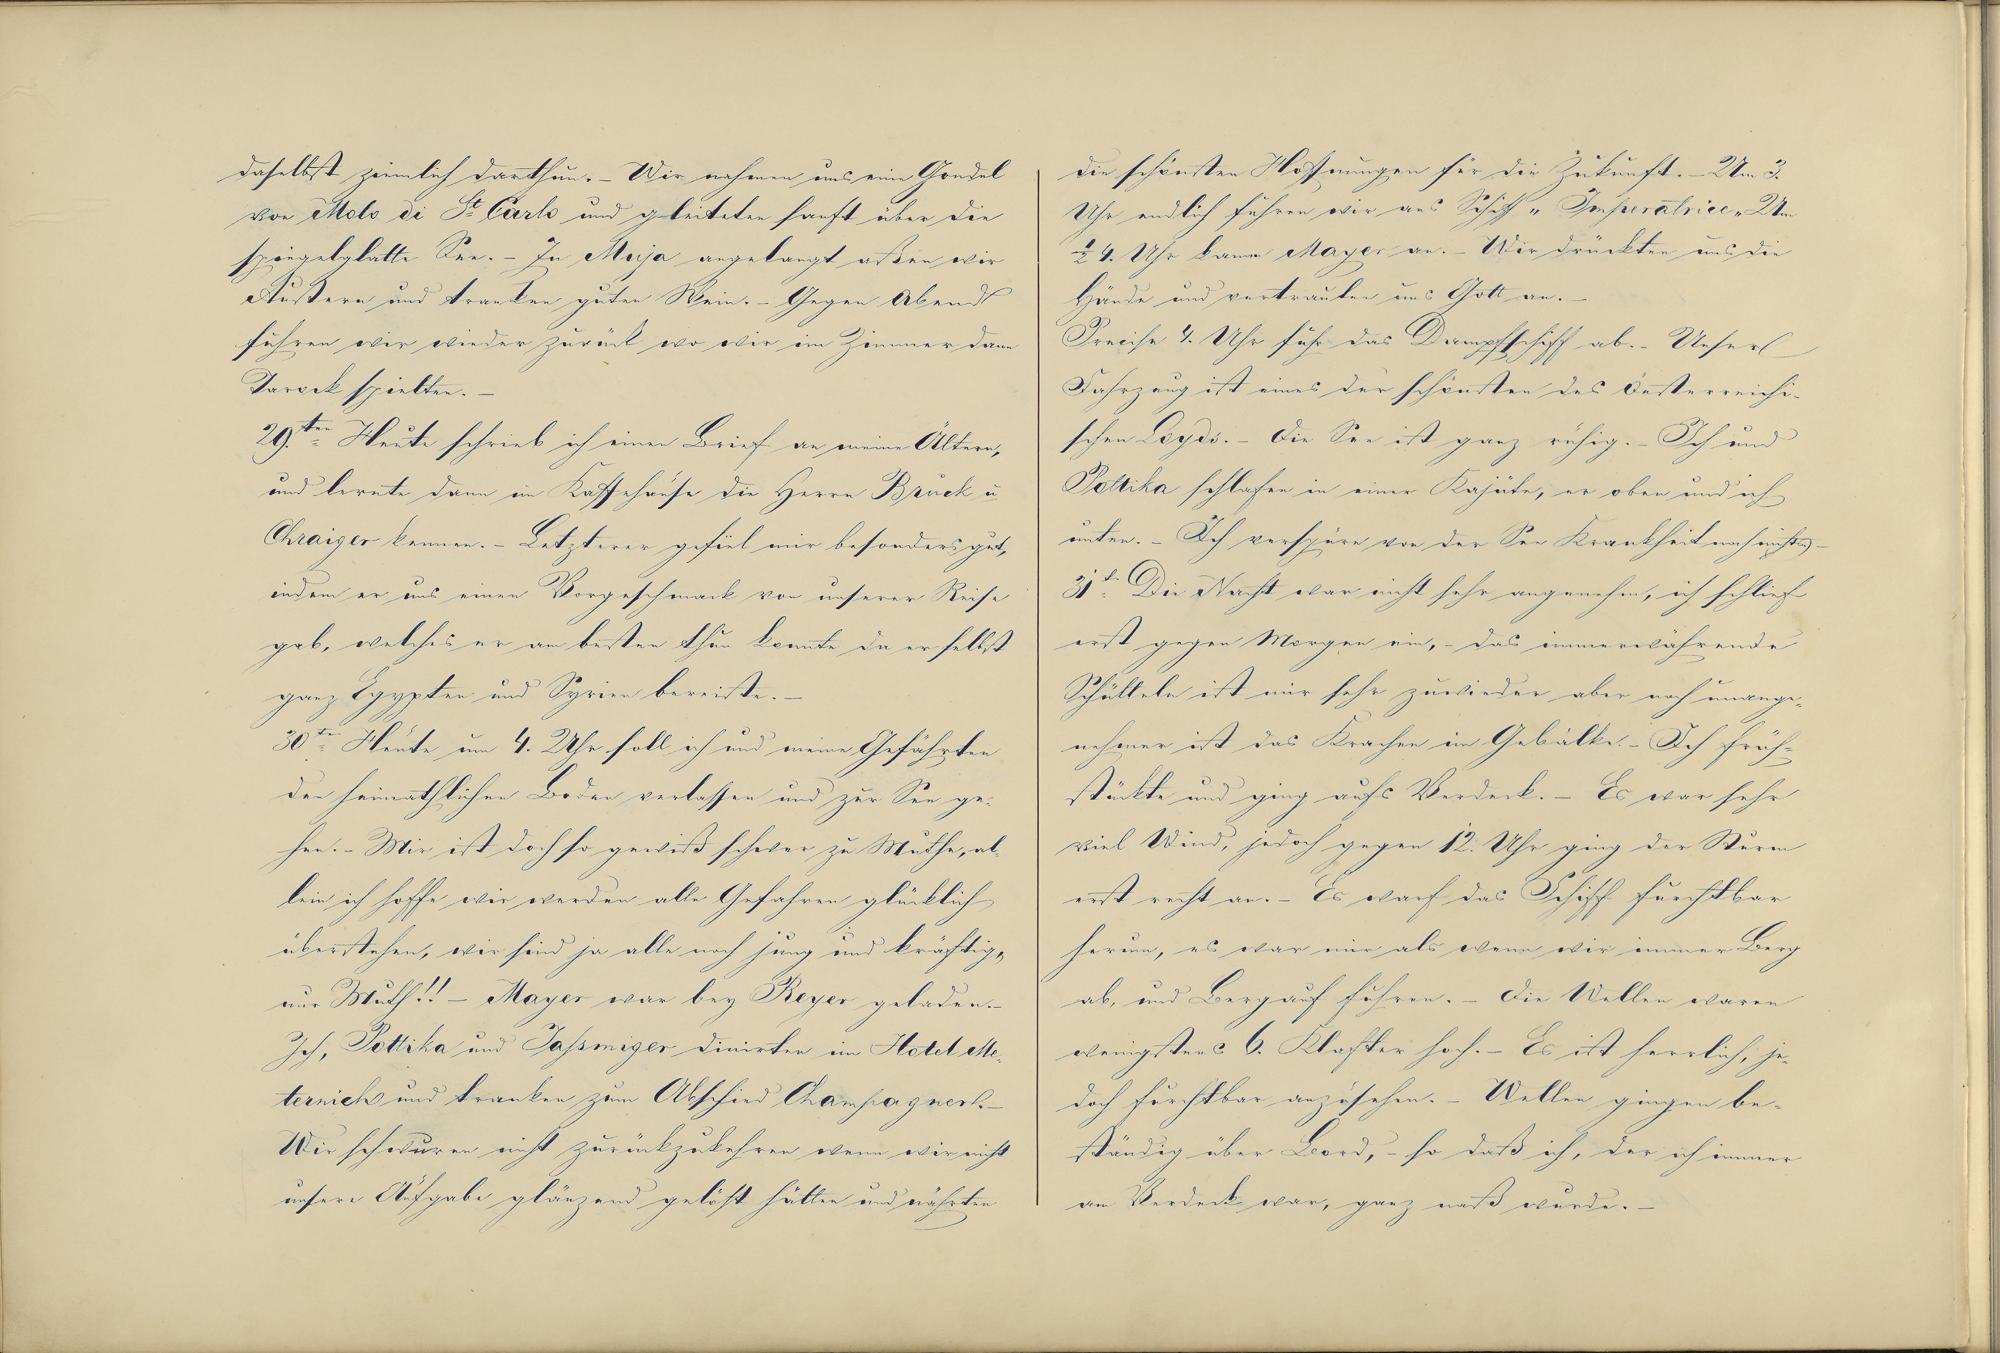 daselbst ziemlich darthun. – Wir nahmen uns eine Gondel
von Molo di St. Carlo und gleiteten sanft über die
spiegelglatte See. – In Muja angelangt aßen wir
Austern und tranken guten Wein. – Gegen Abend
fuhren wir wieder zurück wo wir im Zimmer dann
Tarock spielten. –
29.ten Heute schrieb ich einen Brief an meine Ältern,
und lernte dann im Kaffehause die Herrn Bruck u
Chraiger kennen. – Letzterer gefiel mir besonders gut,
indem er uns einen Vorgeschmack von unserer Reise
gab, welches er am besten thun konnte da er selbst
ganz Egypten und Syrien bereiste. –
30ten Heute um 4. Uhr soll ich und meine Gefährten
den heimathlichen Boden verlassen und zur See ge-
hen. – Mir ist doch so gewiß schwer zu Muthe, al-
lein ich hoffe wir werden alle Gefahren glücklich
überstehen, wir sind ja alle noch jung und kräftig,
nur Muth!! – Mayer war bey Reyer geladen. –
Ich, Pottika und Jaßmiger dinirten im Hotel Me-
ternich und tranken zum Abschied Champagner. –
Wir schwuren nicht zurückzukehren wenn wir nicht
unsere Aufgabe glänzend gelößt hätten und nährten
die schönsten Hoffnungen für die Zukunft. – Um 3.
Uhr endlich fuhren wir ans Schiff „Imperatrice„ Um
½ 4. Uhr kamm Mayer an. – Wir drückten uns die
Hände und vertrauten uns Gott an. –
Precise 4. Uhr fuhr das Dampfschiff ab. – Unser
Fahrzeug ist eines der schönsten des Oesterreichi-
schen Loyds. – Die See ist ganz ruhig. – Ich und
Pottika schlafen in einer Kajüte, er oben und ich
unten. – Ich verspüre von der See Krankheit noch nichts –
31t. Die Nacht war nicht sehr angenehm, ich schlief
erst gegen Morgen ein, – das immerwährende
Schütteln ist mir sehr zuwieder aber noch unange-
nehmer ist das Krachen im Gebälke. – Ich früh-
stückte und ging aufs Verdeck. – Es war sehr
viel Wind, jedoch gegen 12. Uhr ging der Sturm
erst recht an. – Es warf das Schiff furchtbar
herum, es war mir als wenn wir immer Berg
ab, und Bergauf führen. – Die Wellen waren
wenigstens 6. Klafter hoch. – Es ist herrlich, je-
doch furchtbar anzusehen. – Wellen gingen be-
ständig über Bord, – so daß ich, der ich immer
am Verdeck war, ganz naß wurde. –